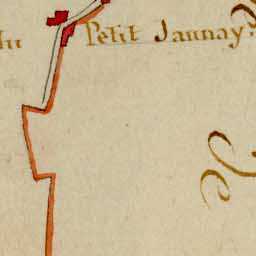 du Petit Jaunay